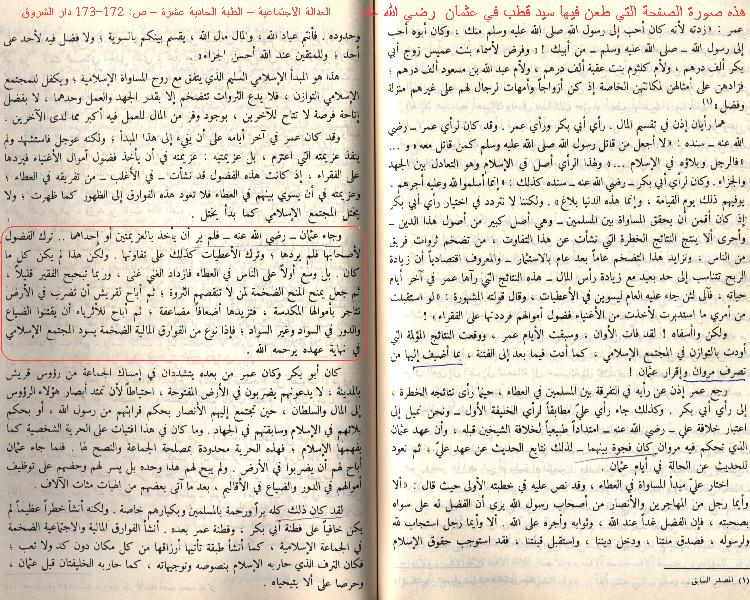 هذه صورة الصفحة التي طعن فيها سيد قطب في عثمان رضي الله عنه
العدالة الاجتماعية – الطبعة الحادية عشرة – ص: 172-173 دار الشروق
عمر : «زدته لأنه كان أحب إلى رسول الله صلى الله عليه وسلم منك ، وكان أبوه أحب
إلى رسول الله ــ صلى الله عليه وسلم ــ من أبيك !» وفرض لأسماء بنت عميس زوج أبي
بكر ألف درهم ؛ ولأم كلثوم بنت عقبة ألف درهم ، ولأم عبد الله بن مسعود ألف درهم ؛
فزادهن على أمثالهن لمكانتهن الخاصة إذ كن أزواجاً وأمهات لرجال لهم على غيرهم منزلة
وفضل»(١)
هما رأيان إذن في تقسيم المال . رأي أبي بكر ورأي عمر . وقد كان لرأي عمر ــ رضي
الله عنه ــ سنده : «لا أجعل من قاتل رسول الله صلى الله عليه وسلم كمن قاتل معه» و ...
«فالرجل وبلاؤه في الإسلام ...» ولهذا الرأي أصل في الإسلام وهو التعادل بين الجهد
والجزاء . وكان لرأي أبي بكر ــ رضي الله عنه ــ سنده كذلك : «إنما أسلموا لله وعليه أجرهم ،
يوفيهم ذلك يوم القيامة ، وإنما هذه الدنيا بلاغ» . ولكننا لا نتردد في اختيار رأي أبي بكر
إذ كان أقمن أن يحقق المساواة بين المسلمين ــ وهي أصل كبير من أصول هذا الدين ــ
وأحرى ألا ينتج النتائج الخطرة التي نشأت عن هذا التفاوت ، من تضخم ثروات فريق
من الناس ، وتزايد هذا التضخم عاماً بعد عام بالاستثمار ــ والمعروف اقتصادياً أن زيادة
الربح تتناسب إلى حد بعيد مع زيادة رأس المال ــ هذه النتائج التي رآها عمر في آخر أيام
حياته ، فآلى لئن جاء عليه العام ليسوين في الأعطيات ، وقال قولته المشهورة : «لو استقبلت
من أمري ما استدبرت لأخذت من الأغنياء فضول أموالهم فرددتها على الفقراء» !
ولكن واأسفاه ! لقد فات الأوان ، وسبقت الأيام عمر ، ووقعت النتائج المؤلمة التي
أودت بالتوازن في المجتمع الإسلامي ، كما أدت فيما بعد إلى الفتنة ، بما أضيف إليها من
تصرف مروان وإقرار عثمان !
رجع عمر إذن عن رأيه في التفرقة بين المسلمين في العطاء ، حينما رأى نتائجه الخطرة ،
إلى رأي أبي بكر . وكذلك جاء رأي علي مطابقاً لرأي الخليفة الأول ــ ونحن نميل إلى
اعتبار خلافة علي ــ رضي الله عنه ــ امتداداً طبيعياً لخلافة الشيخين قبله ، وأن عهد عثمان
الذي تحكم فيه مروان كان فجوة بينهما ــ لذلك نتابع الحديث عن عهد علي ، ثم نعود
للحديث عن الحالة في أيام عثمان .
اختار علي مبدأ المساواة في العطاء ، وقد نص عليه في خطبته الأولى حيث قال : «ألا
وأيما رجل من المهاجرين والأنصار من أصحاب رسول الله يرى أن الفضل له على سواه
بصحبته ، فإن الفضل غداً عند الله ، وثوابه وأجره على الله . ألا وأيما رجل استجاب لله
ولرسوله ، فصدق ملتنا ، ودخل ديننا ، واستقبل قبلتنا ، فقد استوجب حقوق الإسلام
(١) المصدر السابق .
وحدوده . فأنتم عباد الله ، والمال مال الله ، يقسم بينكم بالسوية ؛ ولا فضل فيه لأحد على
أحد ؛ وللمتقين عند الله أحسن الجزاء» .
هذا هو المبدأ الإسلامي السليم الذي يتفق مع روح المساواة الإسلامية ؛ ويكفل للمجتمع
الإسلامي التوازن ، فلا يدع الثروات تتضخم إلا بقدر الجهد والعمل وحدهما ، لا بفضل
إتاحة فرصة لا تتاح للآخرين ، بوجود وفر من المال للعمل فيه أكبر مما لدى الآخرين .
وقد كان عمر في آخر أيامه على أن يفيء إلى هذا المبدأ ؛ ولكنه عوجل فاستشهد ولم
ينفذ عزيمته التي اعتزم ، بل عزيمتيه : عزيمته في أن يأخذ فضول أموال الأغنياء فيردها
على الفقراء ، إذ كانت هذه الفضول قد نشأت ــ في الأغلب ــ من تفريقه في العطاء ؛
وعزيمته في أن يسوي بينهم في العطاء فلا تعود هذه الفوارق إلى الظهور كما ظهرت ؛ ولا
يختل المجتمع الإسلامي كما بدأ يختل .
وجاء عثمان ــ رضي الله عنه ــ فلم ير أن يأخذ بالعزيمتين أو إحداهما .. ترك الفضول
لأصحابها فلم يردها ؛ وترك الأعطيات كذلك على تفاوتها . ولكن هذا لم يكن كل ما
كان . بل وسع أولاً على الناس في العطاء فازداد الغني غنى ، وربما تبحبح الفقير قليلاً ،
ثم جعل يمنح المنح الضخمة لمن لا تنقصهم الثروة ؛ ثم أباح لقريش أن تضرب في الأرض
تتاجر بأموالها المكدسة ، فتزيدها أضعافاً مضاعفة ؛ ثم أباح للأثرياء أن يقتنوا الضياع
والدور في السواد وغير السواد ؛ فإذا نوع من الفوارق المالية الضخمة يسود المجتمع الإسلامي
في نهاية عهده يرحمه الله .
كان أبو بكر وكان عمر من بعده يتشددان في إمساك الجماعة من رؤوس قريش
بالمدينة ، لا يدعونهم يضربون في الأرض المفتوحة ، احتياطاً لأن تمتد أبصار هؤلاء الرؤوس
إلى المال والسلطان ، حين تجتمع إليهم الأنصار بحكم قرابتهم من رسول الله ، أو بحكم
بلائهم في الإسلام وسابقتهم في الجهاد . وما كان في هذا افتيات على الحرية الشخصية كما
يفهمها الإسلام ؛ فهذه الحرية محدودة بمصلحة الجماعة والنصح لها . فلما جاء عثمان
أباح لهم أن يضربوا في الأرض . ولم يبح لهم هذا وحده بل يسر لهم وحضهم على توظيف
أموالهم في الدور والضياع في الأقاليم ، بعد ما آتى بعضهم من الهبات مئات الآلاف .
لقد كان ذلك كله براً ورحمة بالمسلمين وبكبارهم خاصة . ولكنه أنشأ خطراً عظيماً لم
يكن خافياً على فطنة أبي بكر ، وفطنة عمر بعده . أنشأ الفوارق المالية والاجتماعية الضخمة
في الجماعة الإسلامية ، كما أنشأ طبقة تأتيها أرزاقها من كل مكان دون كد ولا تعب ؛
فكان الترف الذي حاربه الإسلام بنصوصه وتوجيهاته ، كما حاربه الخليفتان قبل عثمان ،
وحرصا على ألا يتيحاه .